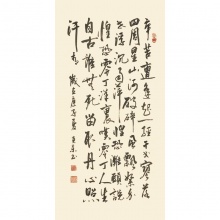 辛苦遭逢起一經干戈寥落
四周星山河破碎風飄絮身
世浮沉雨打萍惶恐灘頭說
惶恐零丁洋裏嘆零丁人生
自古誰無死留取丹心照
汗青